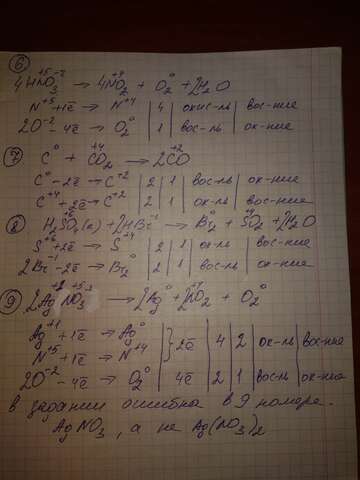 6
4HN⁺⁵O₃⁻² → 4N⁺⁴O₂ + O₂⁰ + 2H₂O
N⁺⁵+1ē → N⁺⁴ | 4 | окис-ль | вос-ние
2O⁻²-4ē → O₂⁰ | 1 | вос-ль | ок-ние
7
C⁰ + C⁺⁴O₂ → 2C⁺²O
C⁰-2ē → C⁺² | 2 | 1 | вос-ль | ок-ние
C⁺⁴+2ē → C⁺² | 2 | 1 | ок-ль | вос-ние
8
H₂S⁺⁶O₄(к) + 2HBr⁻¹ → Br₂⁰ + S⁺⁴O₂ + 2H₂O
S⁺⁶+2ē → S⁺⁴ | 2 | 1 | ок-ль | вос-ние
2Br⁻¹-2ē → Br₂⁰ | 2 | 1 | вос-ль | ок-ние
9
Ag⁺¹+1ē → Ag⁰ } 2ē | 4 | 2 | ок-ль | вос-ние
N⁺⁵+1ē → N⁺⁴
2O⁻²-4ē → O₂⁰ 4ē | 2 | 1 | вос-ль | ок-ние
в задании ошибка в 9 номере.
AgNO₃, а не Ag(NO₃)₂